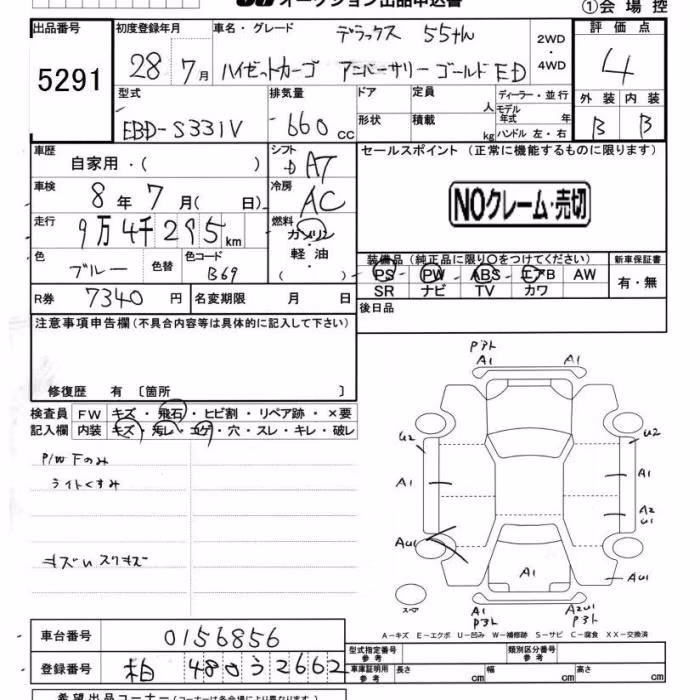 オークション出品申込書
①会場控
出品番号 初度登録年月 車名・グレード 評価点
5291 28年 7月 デラックス 55th
ハイゼットカーゴ アニバーサリー ゴールドED
2WD
・
4WD
4
型式 排気量 ドア 定員 ディーラー・並行 外装 内装
EBD-S331V 660 CC 形状 積載 人 kg モデル年式 年 ハンドル 左・右 B B
車歴 自家用・( ) シフト AT セールスポイント (正常に機能するものに限ります)
車検 8年 7月( 日) 冷房 AC
NOクレーム・売切
走行 9万4千295km 燃料 ガソリン
軽油
( )
色 ブルー 色替 色コード B69
装備品 (純正品に限り○をつけてください) 新車保証書
PS PW ABS エアB AW 有・無
SR ナビ TV カワ
R券 7340円 名変期限 月 日
後日品
注意事項申告欄(不具合内容等は具体的に記入して下さい)
修復歴 有 〔箇所 〕
検査員 FW キズ・飛石・ヒビ割・リペア跡・×要
記入欄 内装 キズ・汚レ・コゲ・穴・スレ・キレ・破レ
P/W Fのみ
ライトくすみ
キズuスリキズ
P3ト
A1 A1
U2 U2
A1 A1
A2
U1
AU1
A1
AU1
スペア
A1 A2U1
P3ト P3ト
A-キズ E-エクボ U-凹み W-補修跡 S-サビ C-腐食 XX-交換済
車台番号 0156856
登録番号 柏 480 う 2662
型式指定番号 参考 類別区分番号 参考
車庫証明用 参考 長さ cm 幅 cm 高さ cm
希望出品コーナー(コーナーは各会場により異なります)